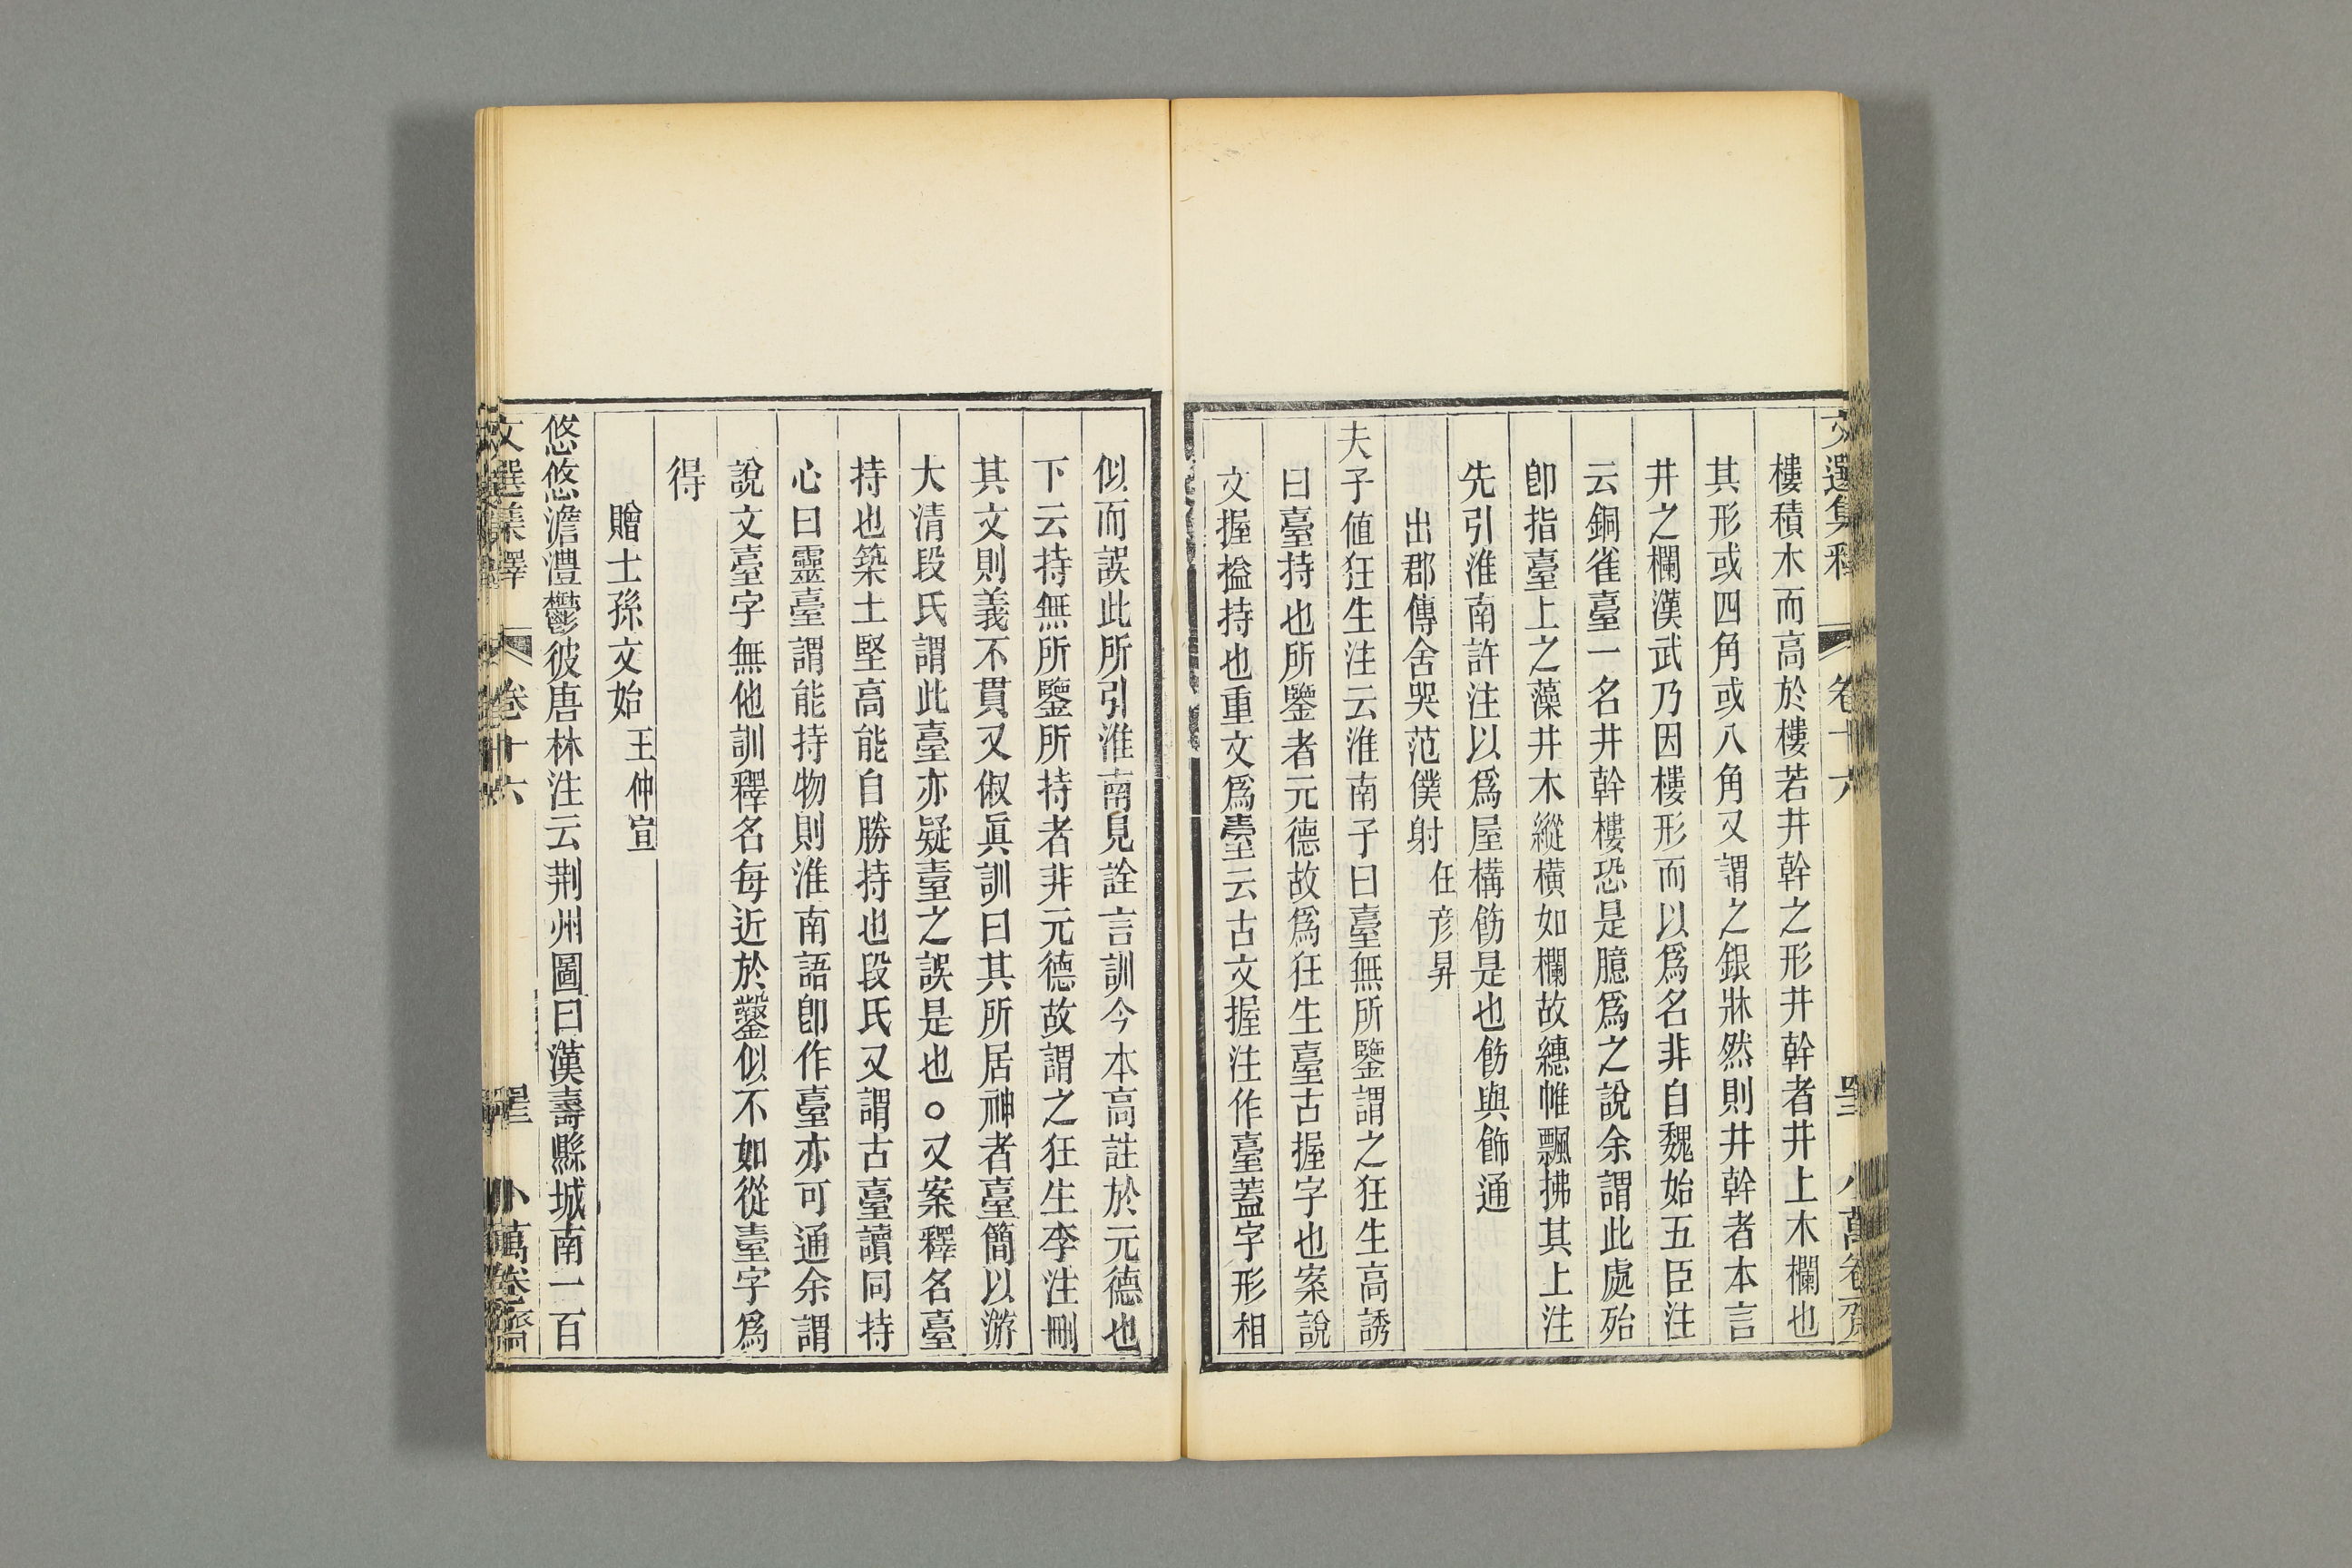 樓積木而高於樓若井幹之形井幹者井上木欄也
其形或四角或八角又謂之銀牀然則井幹者本言
井之欄漢武乃因樓形而以爲名非自魏始五臣注
云銅雀臺一名井幹樓恐是臆爲之說余謂此處殆
卽指臺上之藻井木縱橫如欄故繐帷飄拂其上注
先引淮南許注以爲屋構飭是也飭與飾通
出郡傳舍哭范僕射 任彥昇
夫子値狂生注云淮南子曰臺無所鑒謂之狂生高誘
曰臺持也所鑒者元德故爲狂生臺古握字也案說
文握搤持也重文爲𦤹云古文握注作臺蓋字形相
似而誤此所引淮南見詮言訓今本高註於元德也
下云持無所鑒所持者非元德故謂之狂生李注刪
其文則義不貫又俶眞訓曰其所居神者臺簡以游
大清段氏謂此臺亦疑𦤹之誤是也○又案釋名臺
持也築土堅高能自勝持也段氏又謂古臺讀同持
心曰靈臺謂能持物則淮南語卽作臺亦可通余謂
說文臺字無他訓釋名每近於鑿似不如從𦤹字爲
得
贈士孫文始 王仲宣
悠悠澹澧鬱彼唐林注云荆州圖曰漢壽縣城南一百
文選集釋 卷十六 小萬卷齋